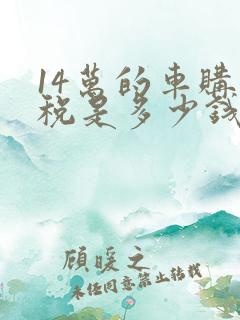 14萬的車購
稅是多少錢
顧暖之
未任同意禁止转载